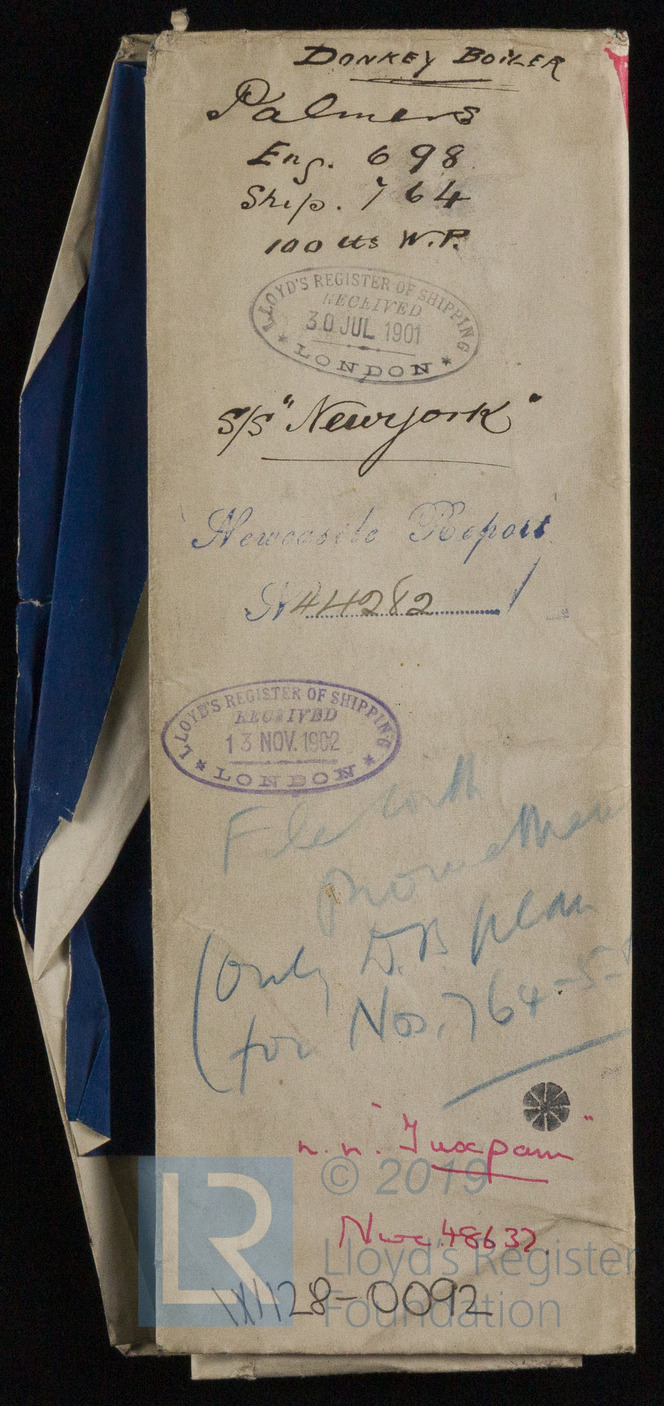 DONKEY BOILER
Palmers
Eng. 698
Ship. 764
100 lbs W.P.
LLOYD'S REGISTER OF SHIPPING
RECEIVED
30 JUL 1901
LONDON
S/S "Newyork"
Newcastle Report
No 44282
LLOYD'S REGISTER OF SHIPPING
RECEIVED
13 NOV. 1902
LONDON
File with
(only D.B plan
for Nos. 764-5-
n.n. "Tuxpam"
© 2019
Nwc 48637.
LR
Lloyd's Register
Foundation
28-0092